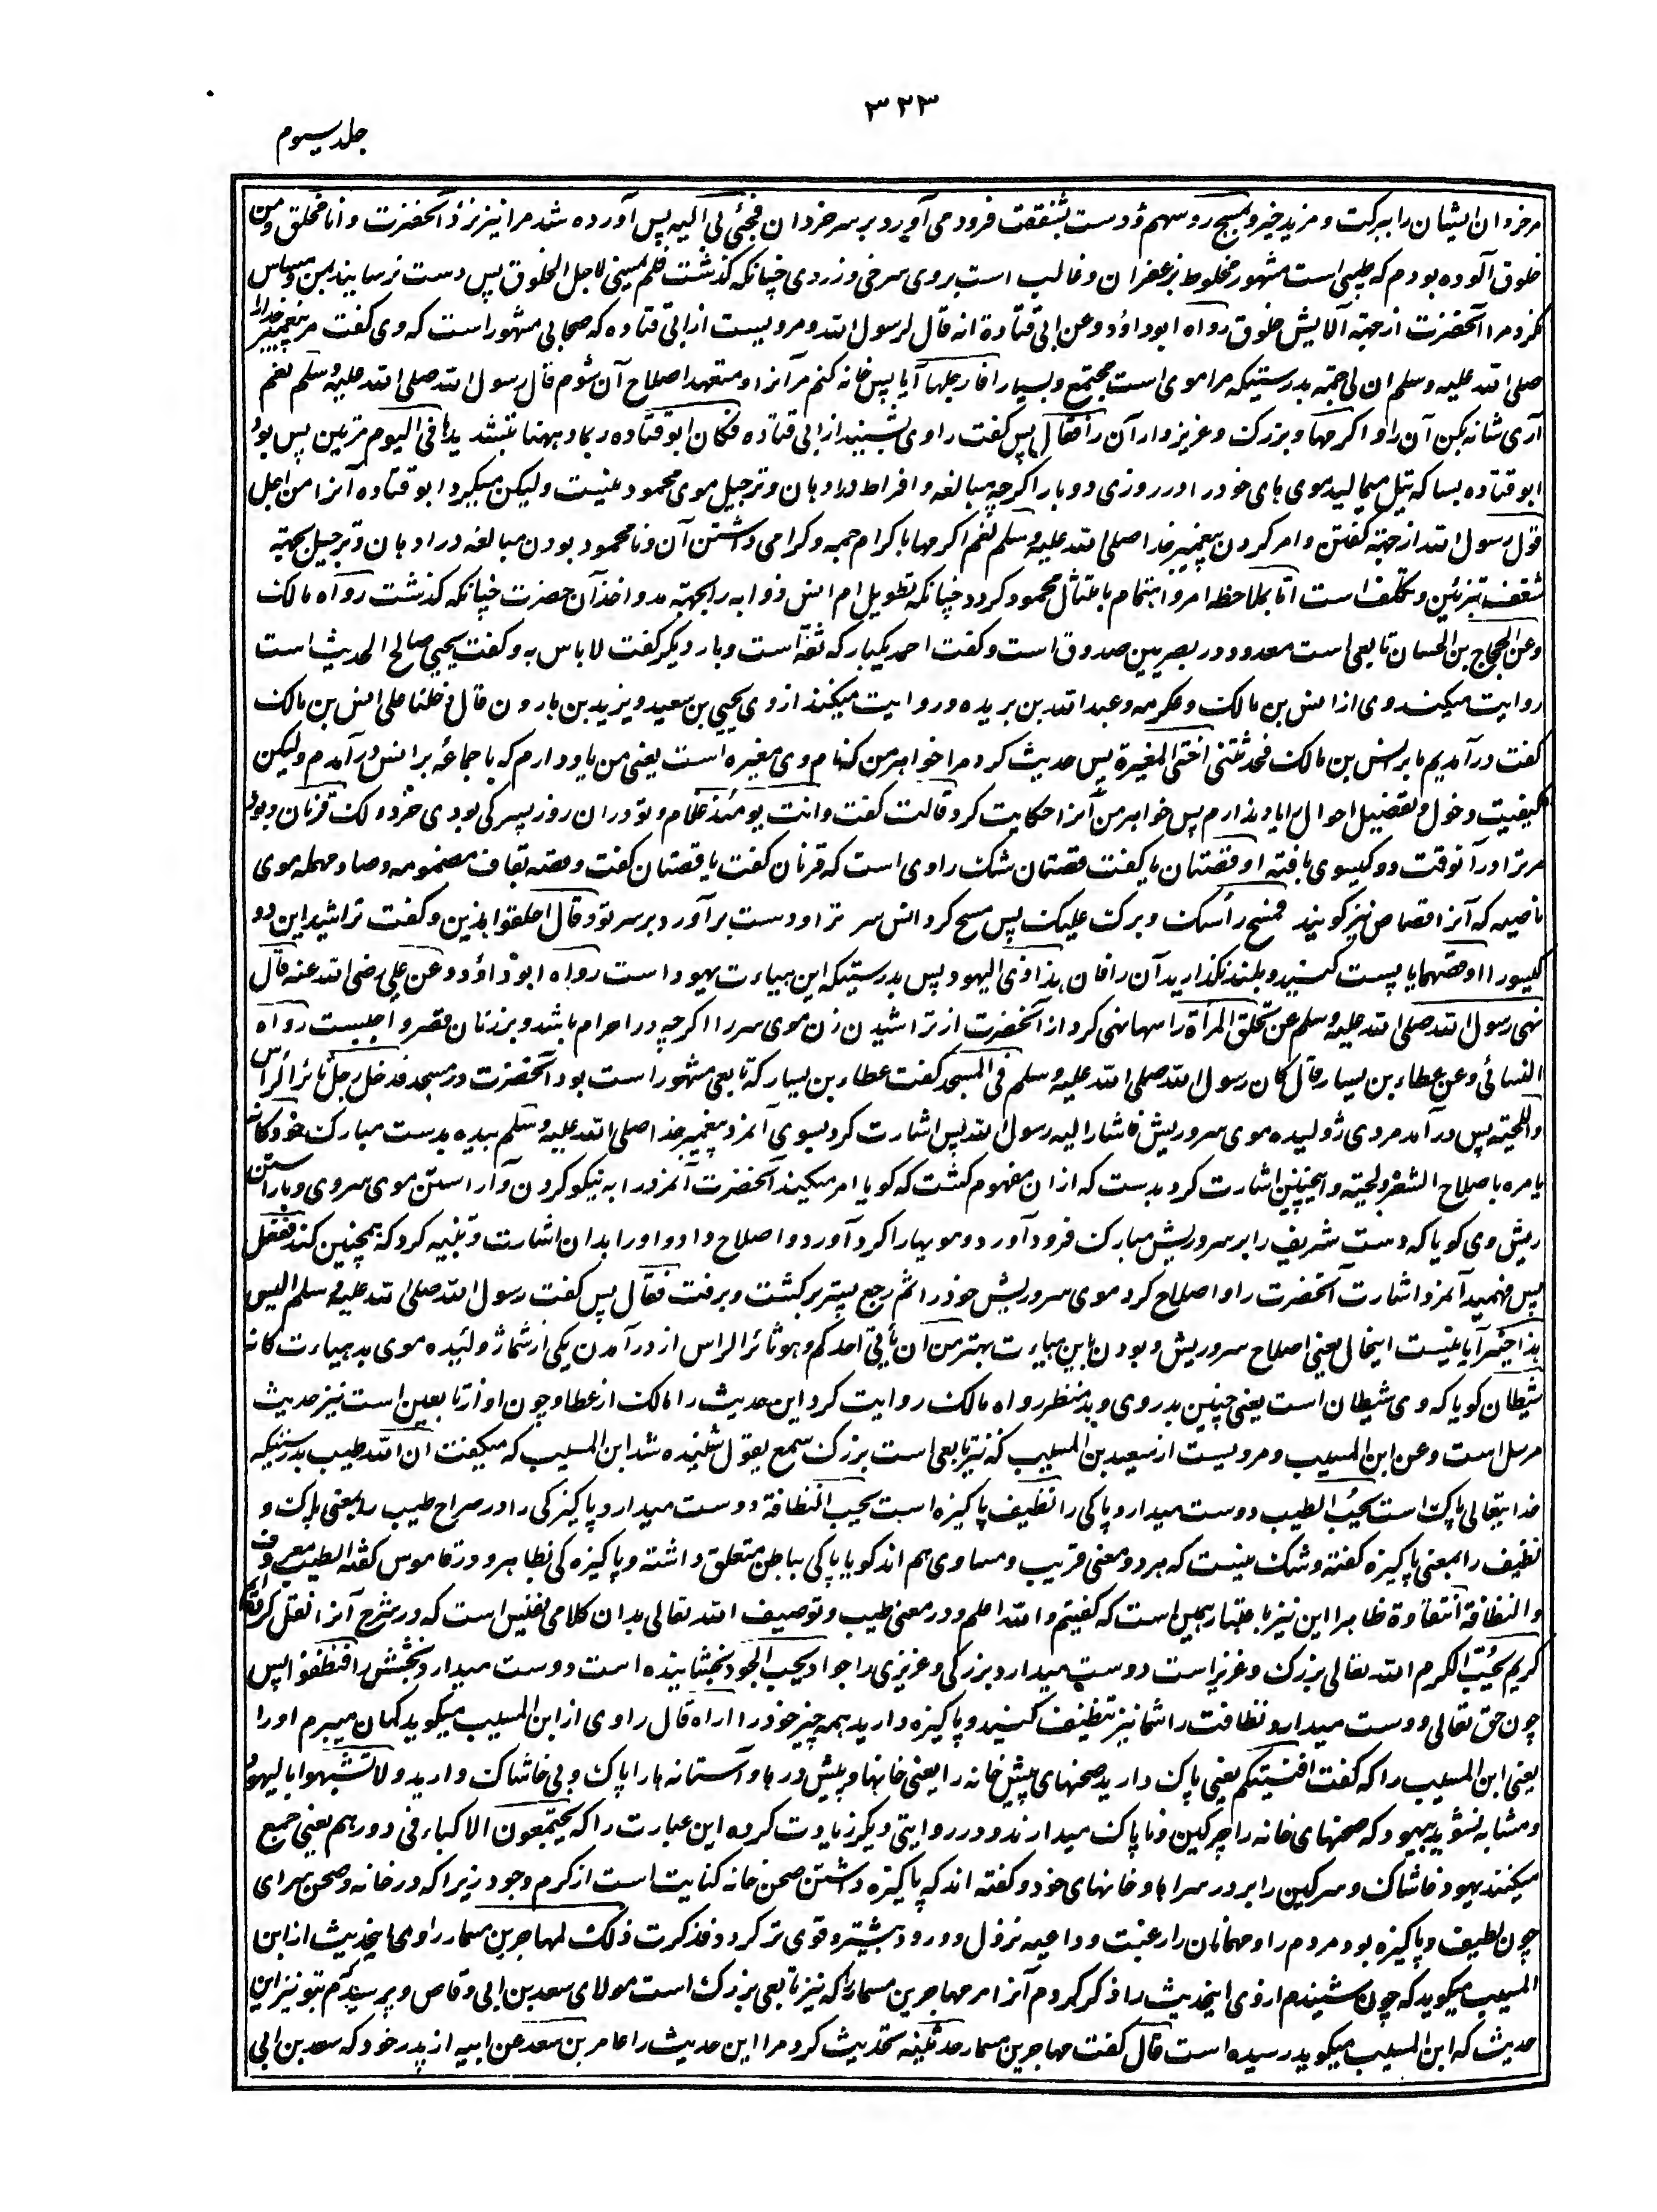 ۳۲۳
جلد سیوم
مر خردان ایشان را ببرکت و مزید خیر و یمسح روسهم و دست بشفقت فرود می آورد بر سر خردان فجئ بی الیه پس آورده شد مرا نیز نزد آنحضرت و انا مخلق و من
خلوق آلوده بودم که طیبی است مشهور مخلوط بزعفران و غالب است بروی سرخی و زردی چنانکه گذشت فلم یمسنی لاجل الخلوق پس دست نرسانید بمن و مساس
نکرد مرا آنحضرت از جهته آلایش خلوق رواه ابوداؤد وعن ابی قتادة انه قال لرسول الله و مرویست از ابی قتاده که صحابی مشهور است که وی گفت مر پیغمبر خدا را
صلی الله علیه وسلم ان لی جمة بدرستیکه مرا موی است مجتمع و بسیار افارجلها آیا پس شانه کنم مر آنرا و متعهد اصلاح آن شوم قال رسول الله صلی الله علیه وسلم نعم
آری شانه بکن آن را و اکرمها و بزرگ و عزیز دار آن را قال پس گفت راوی شنیده از ابی قتاده فکان ابو قتاده ربما دهنها بتشدید ها فی الیوم مرتین پس بود
ابو قتاده بسا که تیل میمالید موی های خود را در روزی دو بار اگرچه مبالغه و افراط در ادهان و ترجیل موی محمود نیست ولیکن میکرد ابو قتاده آنرا من اجل
قول رسول الله از جهته گفتن و امر کردن پیغمبر خدا صلی الله علیه وسلم نعم اکرمها باکرام جمه و گرامی داشتن آن و نامحمود بودن مبالغه در ادهان و ترجیل بجهته
شغف بتزئین و تکلف است اما بملاحظه امر و اهتمام بامتثال محمود گردد چنانکه تطویل ام انس ذوابه را بجهته مد و اخذ آن حضرت چنانکه گذشت رواه مالک
وعن الحجاج بن الحسان تابعی است معدود در بصریین صدوق است و گفت احمد یکبار که ثقه است و بار دیگر گفت لا باس به و گفت یحیی صالح الحدیث است
روایت میکند وی از انس بن مالک و عکرمه و عبد الله بن بریده و روایت میکنند از وی یحیی بن سعید و یزید بن هارون قال دخلنا علی انس بن مالک
گفت در آمدیم ما بر انس بن مالک فحدثتنی اختی المغیرة پس حدیث کرد مرا خواهر من که نام وی مغیره است یعنی من یاد دارم که با جماعه بر انس در آمدم ولیکن
کیفیت دخول و تفصیل احوال را یاد ندارم پس خواهر من آنرا حکایت کرد قالت گفت وانت یومئذ غلام و تو در ان روز پسرکی بودی خرد ولک قرنان و بود
مر ترا در آنوقت دو گیسوی بافته او قصتان یا گفت قصتان شک راوی است که قرنان گفت یا قصتان گفت و قصه بقاف مضمومه و صاد مهمله موی
ناصیه که آنرا قصاص نیز گویند فمسح رأسک و برک علیک پس مسح کرد انس سر ترا و دست برآورد بر سر تو و قال احلقوا هذین و گفت تراشید این دو
گیسو را او قصوهما یا پست کنید و بلند نگذارید آن را فان هذا زی الیهود پس بدرستیکه این هیات یهود است رواه ابوداؤد وعن علی رضی الله عنه قال
نهی رسول الله صلی الله علیه وسلم عن تحلق المرأة راسها نهی کرد از آنحضرت از تراشیدن زن موی سر را اگرچه در احرام باشد و بر زنان قصر واجبست رواه
النسائی وعن عطاء بن یسار قال کان رسول الله صلی الله علیه وسلم فی المسجد گفت عطاء بن یسار که تابعی مشهور است بود آنحضرت در مسجد فدخل رجل ثائر الرأس
واللحیته پس در آمد مردی ژولیده موی سر و ریش فاشار الیه رسول الله پس اشارت کرد بسوی آنمرد پیغمبر خدا صلی الله علیه وسلم بیده بدست مبارک خود کانه
یامره باصلاح الشعر و لحیته و اینچنین اشارت کرد بدست که از ان مفهوم گشت که گویا امر میکند آنحضرت آنمرد را به نیکو کردن و آراستن موی سر وی و بآراستن
ریش وی گویا که دست شریف را بر سر و ریش مبارک فرود آورد و مویها را گرد آورد و اصلاح داد و او را بدان اشارت و تنبیه کرد که همچنین کند ففعل
پس فهمید آنمرد اشارت آنحضرت را و اصلاح کرد موی سر و ریش خود را ثم رجع پستر برگشت و برفت فقال پس گفت رسول الله صلی الله علیه وسلم الیس
هذا خیرا آیا نیست اینحال یعنی اصلاح سر و ریش و بودن باین هیات بهتر من ان یأتی احدکم و هو ثائر الراس از در آمدن یکی از شما ژولیده موی بد هیات کانه
شیطان گویا که وی شیطان است یعنی چنین بدروی و بدمنظر رواه مالک روایت کرد این حدیث را مالک از عطا و چون او از تابعین است نیز حدیث
مرسل است وعن ابن المسیب و مرویست از سعید بن المسیب که نیز تابعی است بزرگ سمع یقول شنیده شد ابن المسیب که میگفت ان الله طیب بدرستیکه
خدایتعالی پاک است یحب الطیب دوست میدارد پاکی را نظیف پاکیزه است یحب النظافة دوست میدارد پاکیزگی را در صراح طیب را بمعنی پاک و
نظیف را بمعنی پاکیزه گفته و شک نیست که هر دو معنی قریب و مساوی هم اند گویا پاکی بباطن متعلق داشته و پاکیزه گی بظاهر و در قاموس گفته الطیب معروف
والنظافة النقاوة ظاهرا این نیز باعتبار همین است که گفتیم و الله اعلم و در معنی طیب و توصیف الله تعالی بدان کلامی نفیس است که در شرح آنرا نقل کرده ایم
کریم یحب الکرم الله تعالی بزرگ و عزیز است دوست میدارد بزرگی و عزیزی را جواد یحب الجود بخشاینده است دوست میدارد بخشش را فنظفوا پس
چون حق تعالی دوست میدارد نظافت را شما نیز تنظیف کنید و پاکیزه دارید همه چیز خود را اراه قال راوی از ابن المسیب میگوید گمان میبرم او را
یعنی ابن المسیب را که گفت افنیتکم یعنی پاک دارید صحنهای پیش خانه را یعنی خانها و پیش درها و آستانه ها را پاک و بی خاشاک دارید ولا تشبهوا بالیهود
و مشابه نشوید بیهود که صحنهای خانه را چرکین و ناپاک میدارند و در روایتی دیگر زیادت کرده این عبارت را که یجتمعون الاکباء فی دورهم یعنی جمع
میکنند یهود خاشاک و سرگین را بر در سراها و خانهای خود و گفته اند که پاکیزه داشتن صحن خانه کنایت است از کرم وجود زیرا که در خانه و صحن سرای
چون لطیف و پاکیزه بود مردم را و مهمانان را رغبت و داعیه نزول و ورود بیشتر و قوی تر گردد فذکرت ذلک لمهاجر بن مسمار راوی اینحدیث از ابن
المسیب میگوید که چون شنیدم از وی اینحدیث را ذکر کردم آنرا مر مهاجر بن مسمار را که نیز تابعی بزرگ است مولای سعد بن ابی وقاص و پرسیدم بتو نیز این
حدیث که ابن المسیب میگوید رسیده است قال گفت مهاجر بن مسمار حدثنیه تحدیث کرد مرا این حدیث را عامر بن سعد عن ابیه از پدر خود که سعد بن ابی